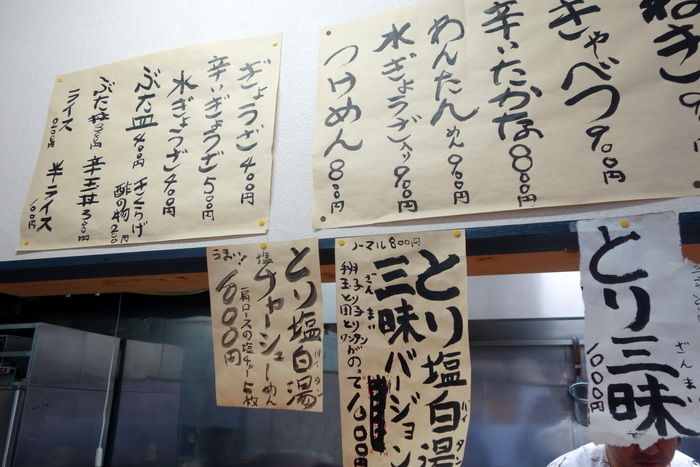 ぎょうざ 400円
辛いぎょうざ 500円
水ぎょうざ 400円
ぶた皿 400円
きくらげ
酢の物 200円
辛玉丼 300円
半ライス 100円
ライス
ねぎ
きゃべつ 900円
辛いたかな 800円
わんたんめん 900円
水ぎょうざ入り 900円
つけめん 800円
とり塩白湯
パイタン
塩チャーシューめん
肩ロースの塩チャー5枚
うまい!
とり塩白湯
パイタン
三昧バージョン
ざんまい
ノーマル800円
とり三昧
ざんまい
1000円